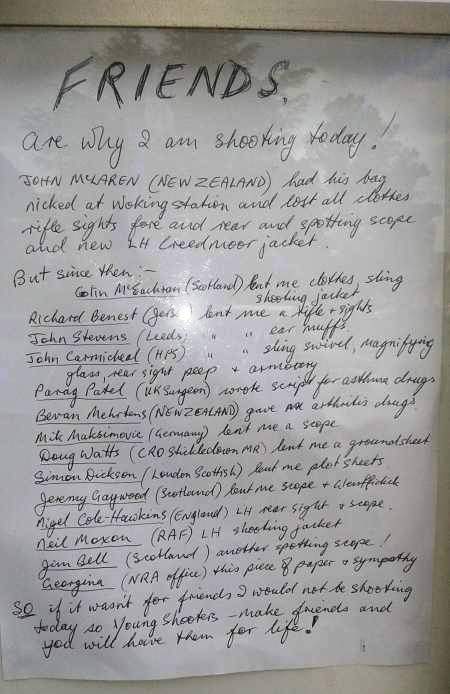 FRIENDS.
are why I am shooting today!
JOHN McLAREN (NEW ZEALAND) had his bag
nicked at Woking station and lost all clothes
rifle sights fore and rear and spotting scope
and new LH Creedmoor jacket.
But since then :-
Colin McEachran (Scotland) lent me clothes, sling
shooting jacket
Richard Benest (Jersey) lent me a rifle + sights
John Stevens (Leeds) " " ear muffs
John Carmichael (HPS) " " sling swivel, magnifying
glass, rear sight peep + armoury
Parag Patel (UK Surgeon) wrote script for asthma drugs
Bevan Mehrtens (NEW ZEALAND) gave me arthritis drugs
Mik Maksimovic (Germany) lent me a scope
Doug Watts (CRO Stickledown MR) lent me a groundsheet
Simon Dickson (London Scottish) lent me plot sheets
Jeremy Gaywood (Scotland) lent me scope + Glenfiddich
Nigel Cole-Hawkins (England) LH rear sight + scope.
Neil Moxon (RAF) LH shooting jacket
Jim Bell (Scotland) another spotting scope!
Georgina (NRA office) this piece of paper + sympathy
SO if it wasn't for friends I would not be shooting
today so Young Shooters - make friends and
you will have them for life!